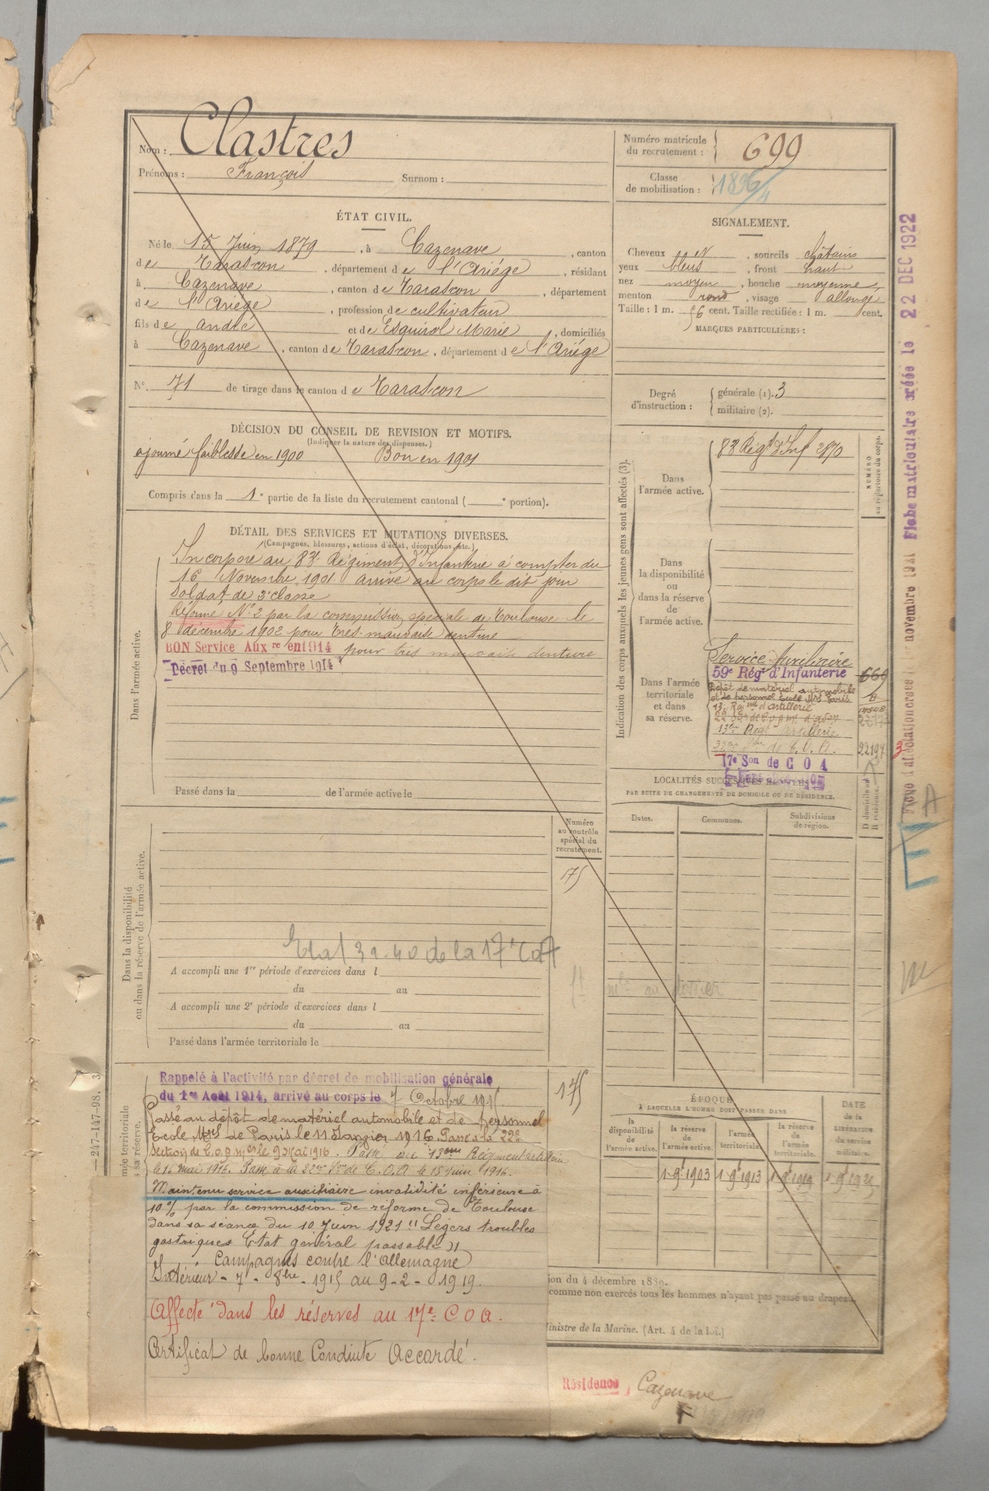 Nom : Clastres
Prénoms : François Surnom :
ÉTAT CIVIL.
Né le 15 Juin 1879, à Cazenave, canton
de Tarascon, département de l'Ariége, résidant
à Cazenave, canton de Tarascon, département
de l'Ariége, profession de cultivateur
fils de andré et de Esquirol Marie, domiciliés
à Cazenave, canton de Tarascon, département de l'Ariége
N° 71 de tirage dans le canton de Tarascon
DÉCISION DU CONSEIL DE REVISION ET MOTIFS.
(Indiquer la nature des dispenses.)
ajourné faiblesse en 1900 Bon en 1901
Compris dans la 1e partie de la liste du recrutement cantonal ( e portion).
DÉTAIL DES SERVICES ET MUTATIONS DIVERSES.
(Campagnes, blessures, actions d'éclat, décorations, etc.)
Dans l'armée active.
Incorporé au 83e Régiment d'Infanterie à compter du
16 Novembre 1901 arrivé au corps le dit jour
Soldat de 2e classe
Réformé N°2 par la commission spéciale de Toulouse le
8 décembre 1902 pour très mauvaise denture
BON Service Auxre en 1914 pour très mauvaise denture
Décret du 9 Septembre 1914
Passé dans la de l'armée active le
Dans la disponibilité
ou dans la réserve de l'armée active.
Numéro
au contrôle
spécial du
recrutement.
175
Etat 39-40 de la 17e
A accompli une 1re période d'exercices dans l
du au
A accompli une 2e période d'exercices dans l
du au
Passé dans l'armée territoriale le
Rappelé à l'activité par décret de mobilisation générale
du 1er Août 1914, arrivé au corps le 7 Octobre 1915.
175
Passé au dépôt de matériel automobile et de personnel
Ecole de Paris le 11 Janvier 1916 Passé à la 22e
Section de C.O.A. le 9 mai 1916. Passé au 13eme Régiment artillerie
le 16 mai 1916. Passé à la 22e Son de C.O.A le 15 Juin 1916.
Maintenu service auxiliaire invalidité inférieure à
10% par la commission de réforme de Toulouse
dans sa séance du 10 Juin 1921 "Légers troubles
gastriques Etat général passable"
Campagnes contre l'allemagne
Intérieur - 7 - 8bre 1915 au 9-2-1919.
Affecté dans les réserves au 17e C O A.
Certificat de bonne Conduite Accordé.
247-147-08.
Numéro matricule
du recrutement : 699
Classe
de mobilisation : 1896/4
SIGNALEMENT.
Cheveux, sourcils châtains
yeux bleus, front haut
nez moyen, bouche moyenne
menton rond, visage allongé
Taille : 1 m. 56 cent. Taille rectifiée : 1 m. cent.
MARQUES PARTICULIÈRES :
Degré
d'instruction :
générale (1). 3
militaire (2).
Indication des corps auxquels les jeunes gens sont affectés (3).
Dans
l'armée active.
83e Régt d'Inf 2870
NUMÉRO
au répertoire du corps.
Dans
la disponibilité
ou
dans la réserve
de
l'armée active.
Dans l'armée
territoriale
et dans
sa réserve.
Service Auxiliaire
59e Régt d'Infanterie 669
Dépôt de matériel automobile
et de personnel Ecole Paris
13e Regt d'artillerie
13e Regt Artillerie
17e Son de C O A
LOCALITÉS SUCCESSIVES
PAR SUITE DE CHANGEMENTS DE DOMICILE OU DE RÉSIDENCE.
D domicile ou
R résidence.
Dates. Communes. Subdivisions
de région.
ÉPOQUE
À LAQUELLE L'HOMME DOIT PASSER DANS
la
disponibilité
de
l'armée active.
la réserve
de
l'armée active.
l'armée
territoriale.
la réserve
de l'armée
territoriale.
DATE
de la
LIBÉRATION
du service
militaire.
1-9bre1903 1-9bre1913 1-9bre1919
ion du 4 décembre 1889.
comme non exercés tous les hommes n'ayant pas passé au drapeau
Ministre de la Marine. (Art. 4 de la loi.)
Résidence, Cazenave
Fiche matriculaire créée le 22 DEC 1922